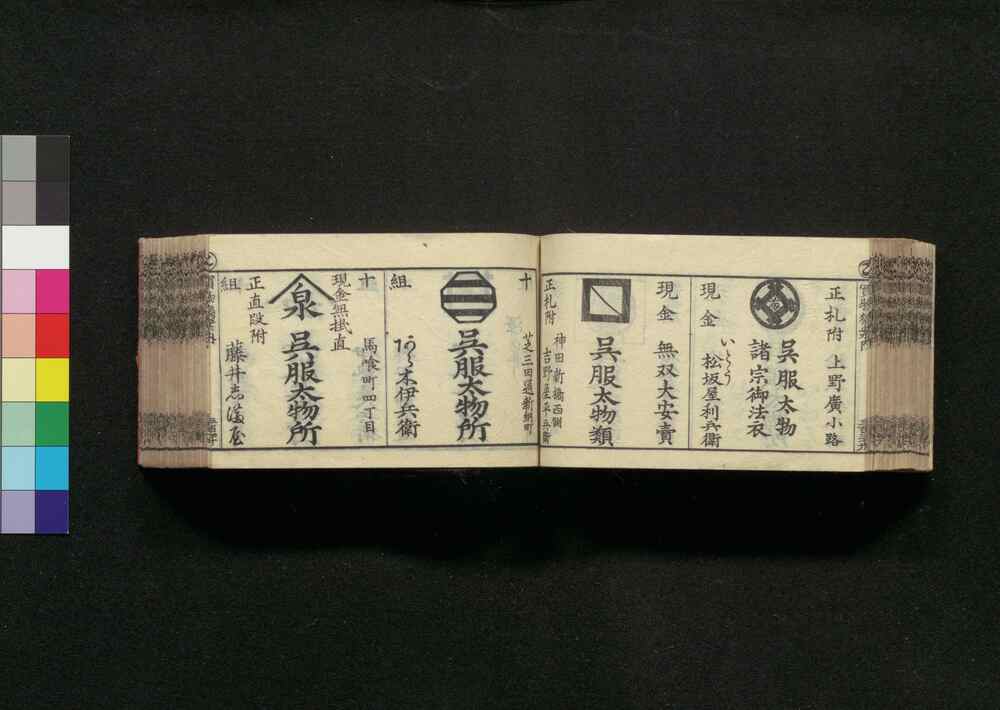 正札附 上野廣小路
呉服太物
諸宗御法衣
いとう
松坂屋利兵衛
現金
現金 無双大安賣
呉服太物類
正札附
神田新橋西側
吉野屋平兵衛
十
芝三田通新網町
呉服太物所
組
木伊兵衛
十
馬喰町四丁目
現金無掛直
泉
呉服太物所
正直段附
組
藤井志満屋